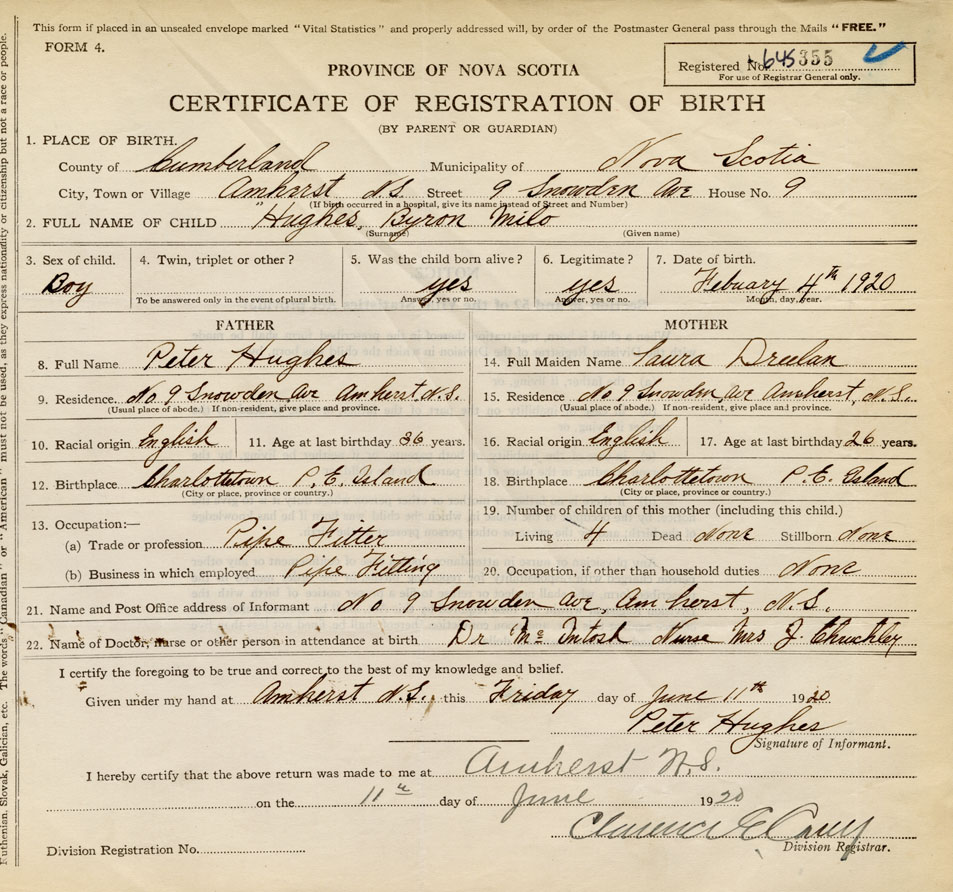 This form if placed in an unsealed envelope marked "Vital Statistics" and properly addressed will, by order of the Postmaster General pass through the Mails "FREE."
FORM 4.
Registered No. 645355
For use of Registrar General only.
PROVINCE OF NOVA SCOTIA
CERTIFICATE OF REGISTRATION OF BIRTH
(BY PARENT OR GUARDIAN)
1. PLACE OF BIRTH.
County of Cumberland Municipality of Nova Scotia
City, Town or Village Amherst N.S. Street 9 Snowden Ave House No. 9
(If birth occurred in a hospital, give its name instead of Street and Number)
2. FULL NAME OF CHILD "Hughes, Byron Milo
(Surname) (Given name)
3. Sex of child. 4. Twin, triplet or other? 5. Was the child born alive? 6. Legitimate? 7. Date of birth.
Boy yes yes Febuary 4th 1920
To be answered only in the event of plural birth. Answer, yes or no. Answer, yes or no. Month, day, year.
FATHER MOTHER
8. Full Name Peter Hughes 14. Full Maiden Name Laura Dreelan
9. Residence. No. 9 Snowden Ave Amherst N.S. 15. Residence No 9 Snowden Ave Amherst, N.S.
(Usual place of abode.) If non-resident, give place and province. (Usual place of abode.) If non-resident, give place and province.
10. Racial origin English 11. Age at last birthday 36 years. 16. Racial origin English 17. Age at last birthday 26 years.
12. Birthplace Charlottetown P.E. Island 18. Birthplace Charlottetown P.E. Island
(City or place, province or country.) (City or place, province or country.)
19. Number of children of this mother (including this child.)
13. Occupation:—
(a) Trade or profession Pipe Fitter Living 4 Dead None Stillborn None
(b) Business in which employed Pipe Fitting 20. Occupation, if other than household duties None
21. Name and Post Office address of Informant No 9 Snowden Ave, Amherst, N.S.
22. Name of Doctor, nurse or other person in attendance at birth Dr McIntosh Nurse Mrs J.
I certify the foregoing to be true and correct to the best of my knowledge and belief.
Given under my hand at Amherst N.S. this Friday day of June 11th 1920
Peter Hughes
Signature of Informant.
I hereby certify that the above return was made to me at Amherst N.S.
on the 11th day of June 1920
Clarence E.
Division Registrar.
Division Registration No.
Ruthenian, Slovak, Galician, etc. The words "Canadian" or "American" must not be used, as they express nationality or citizenship but not a race or people.